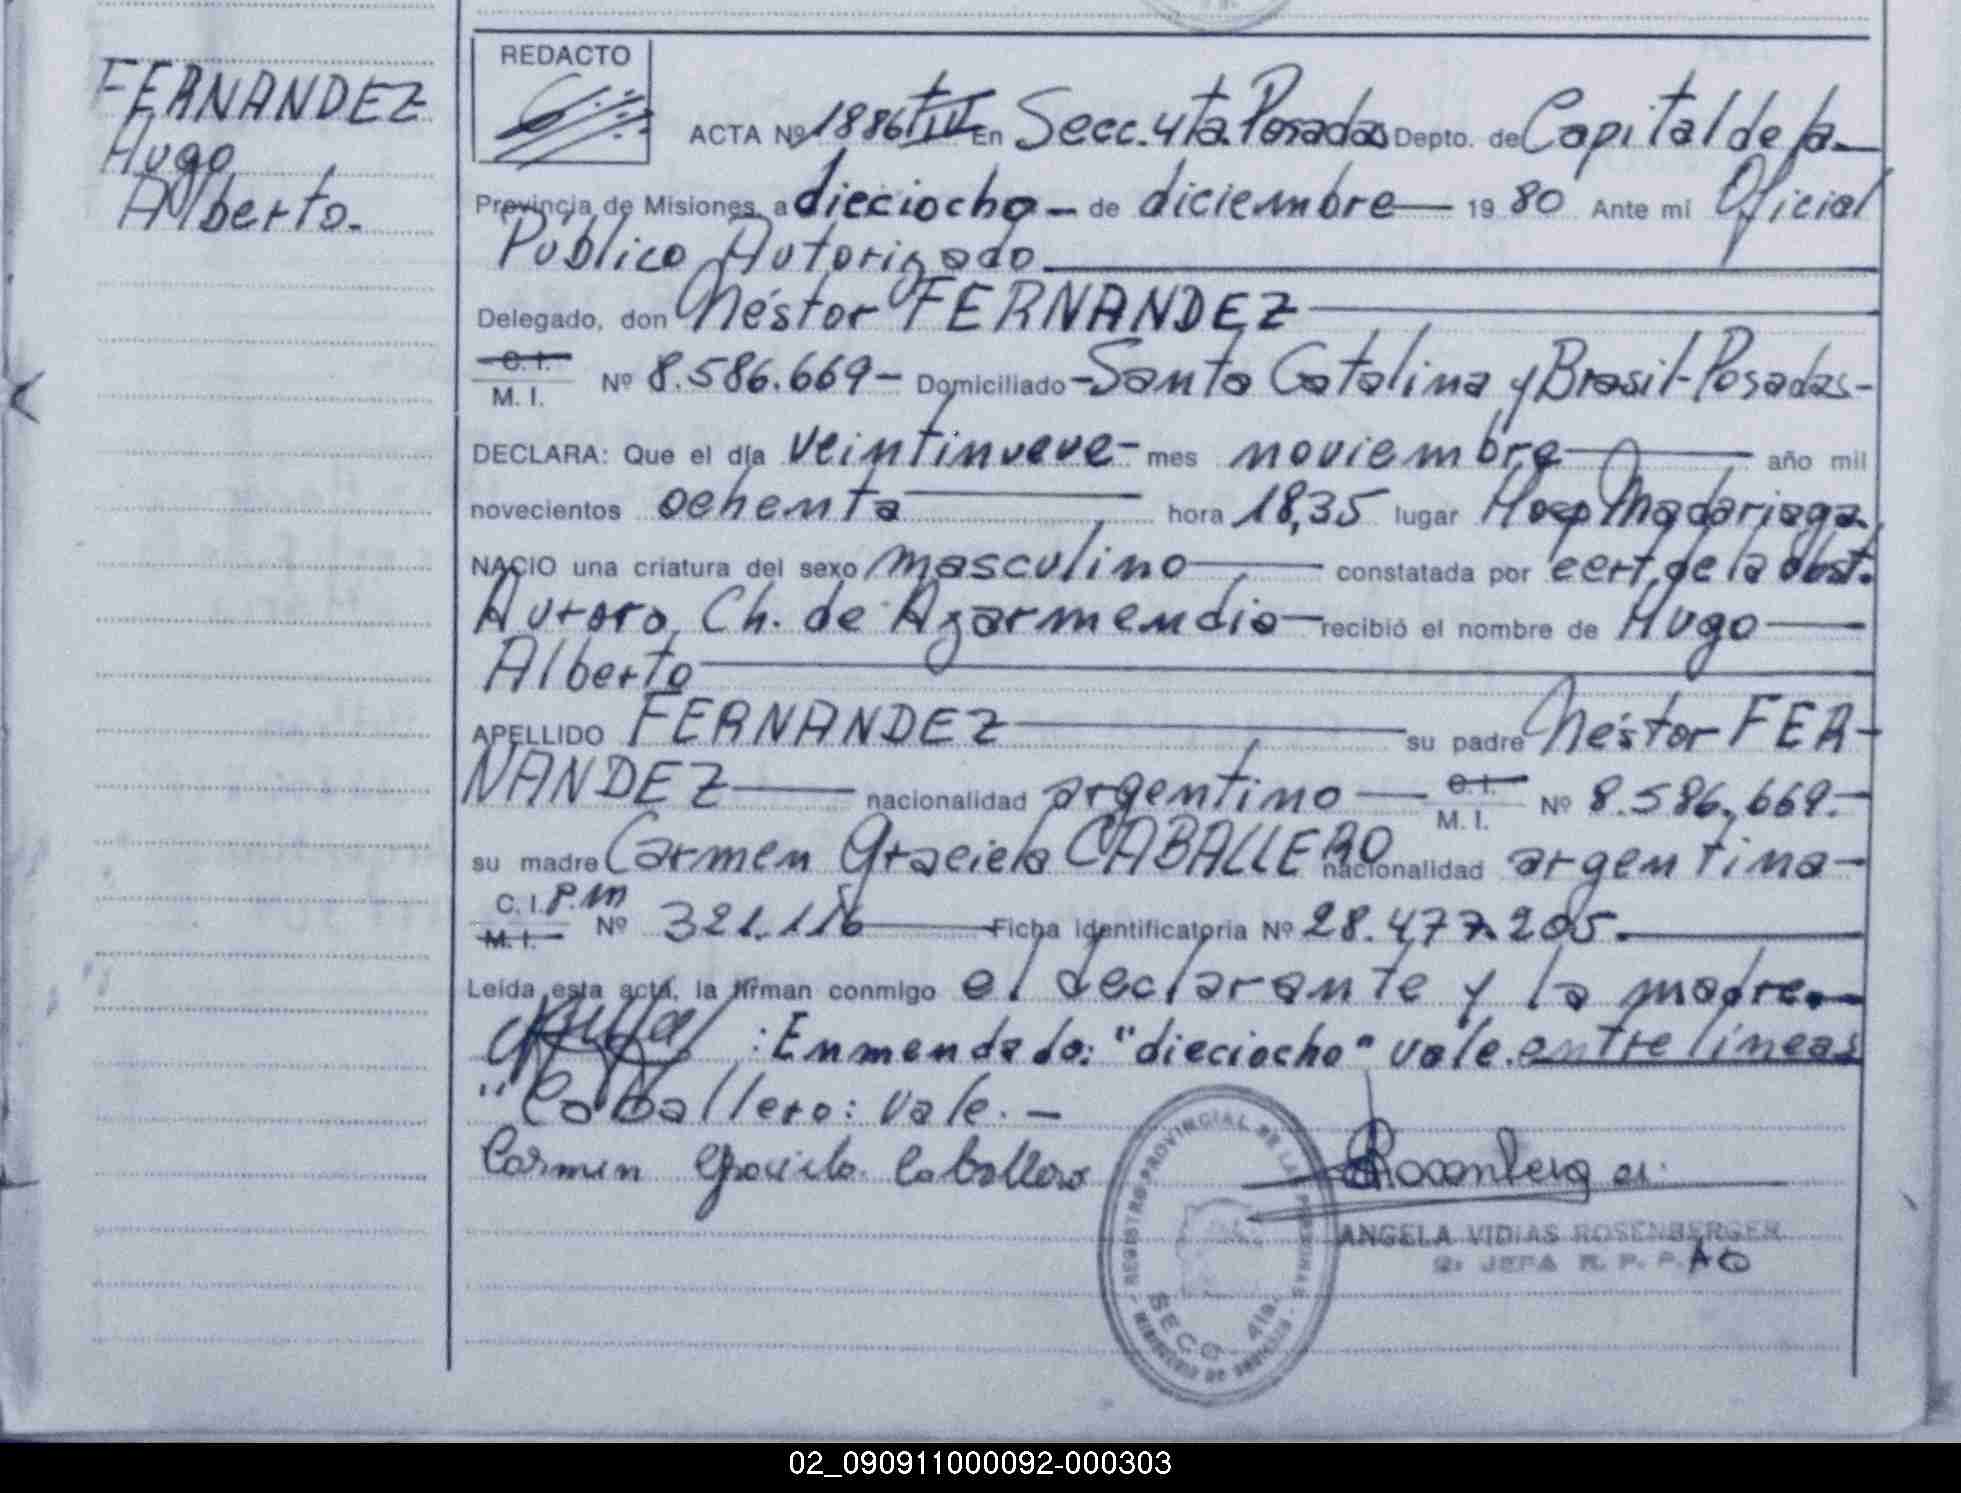 FERNANDEZ
Hugo
Alberto.
REDACTO
ACTA Nº 1886 T IV En Secc. 4ta. Posadas Depto. de Capital de la
Provincia de Misiones, a dieciocho de diciembre 19 80 Ante mi Oficial
Público Autorizado
Delegado, don Néstor FERNANDEZ
C. I.
M. I. Nº 8.586.669 - Domiciliado - Santa Catalina y Brasil - Posadas -
DECLARA: Que el día veintinueve - mes noviembre año mil
novecientos ochenta hora 18,35 lugar Hosp Madariaga.
NACIO una criatura del sexo masculino constatada por cert. de la obst.
Aurora Ch. de Azarmendia recibió el nombre de Hugo
Alberto
APELLIDO FERNANDEZ su padre Néstor FER-
NANDEZ nacionalidad argentino C. I. M. I. Nº 8.586.669.-
su madre Carmen Graciela CABALLERO nacionalidad argentina -
C. I. P.M
M. I. Nº 321.116 Ficha identificatoria Nº 28.477.205.
Leída esta acta, la firman conmigo el declarante y la madre.
: Enmendado: "dieciocho" vale. entre líneas
"Caballero: vale. -
Carmen Graciela Caballero
ANGELA VIDIAS ROSENBERGER
2ª JEFA R. P. P. AO
REGISTRO PROVINCIAL DE LAS PERSONAS
SECC. 4ta.
02_090911000092-000303